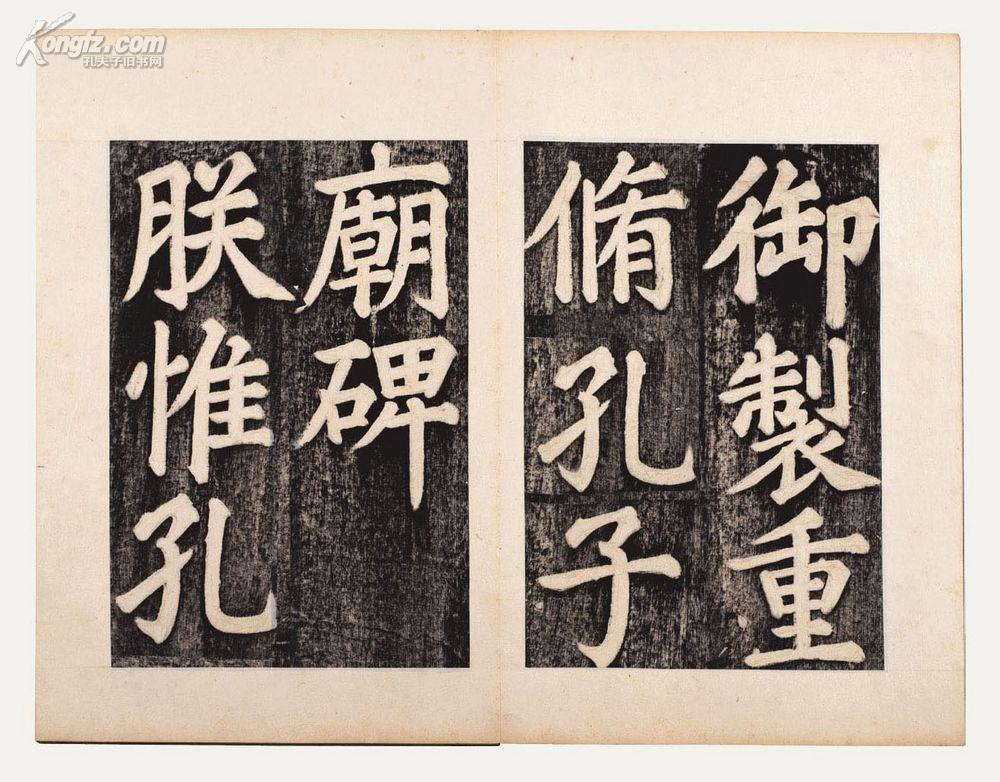 御製重
脩孔子
廟碑
朕惟孔
Kongfz.com
孔夫子旧书网